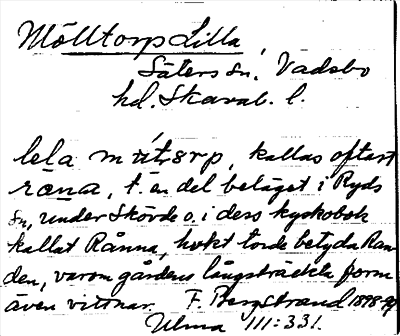 Mölltorp Lilla,
Säters sn, Vadsbo
hd. Skarab. l.
lela mŭtserp, kallas oftast
räna, t. en del beläget i Ryds
sn, under Skörde o. i dess kyrkobok
kallat Rånna, hvilket torde betyda Ran-
den, varom gårdens långsträckta form
även vittnar. F. Bergstrand 1898-99
Ulma 111:331.